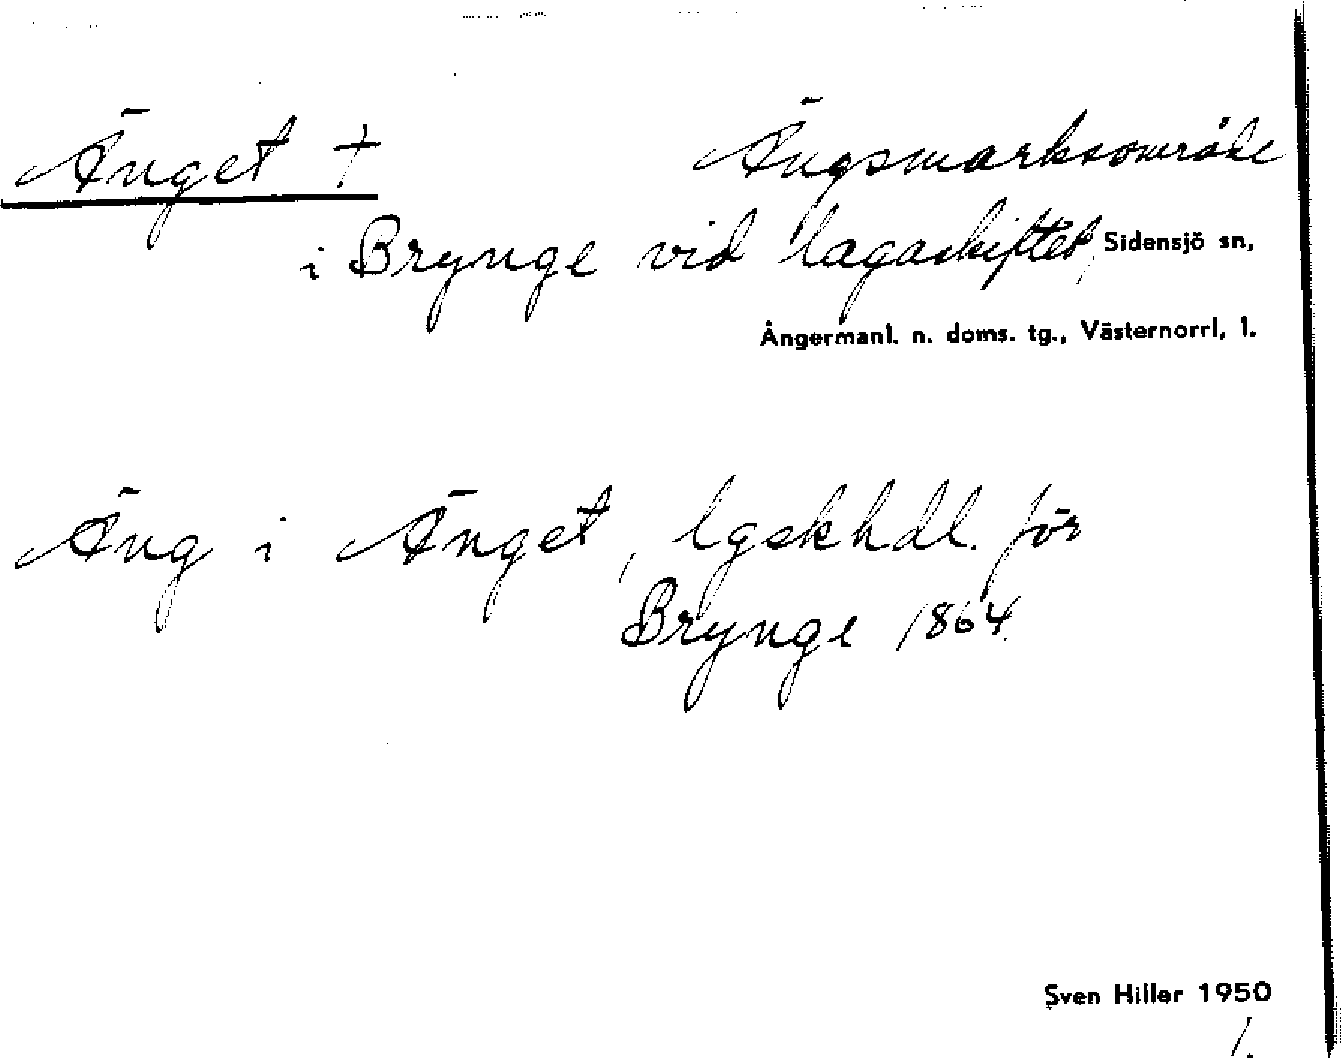 Änget † Ängsmarksområde
i Brynge vid lagaskiftet, Sidensjö sn,
Ångermanl. n. doms. tg., Västernorrl. l.
Äng i Änget, lgskhdl. för
Brynge 1864.
Sven Hiller 1950
/.